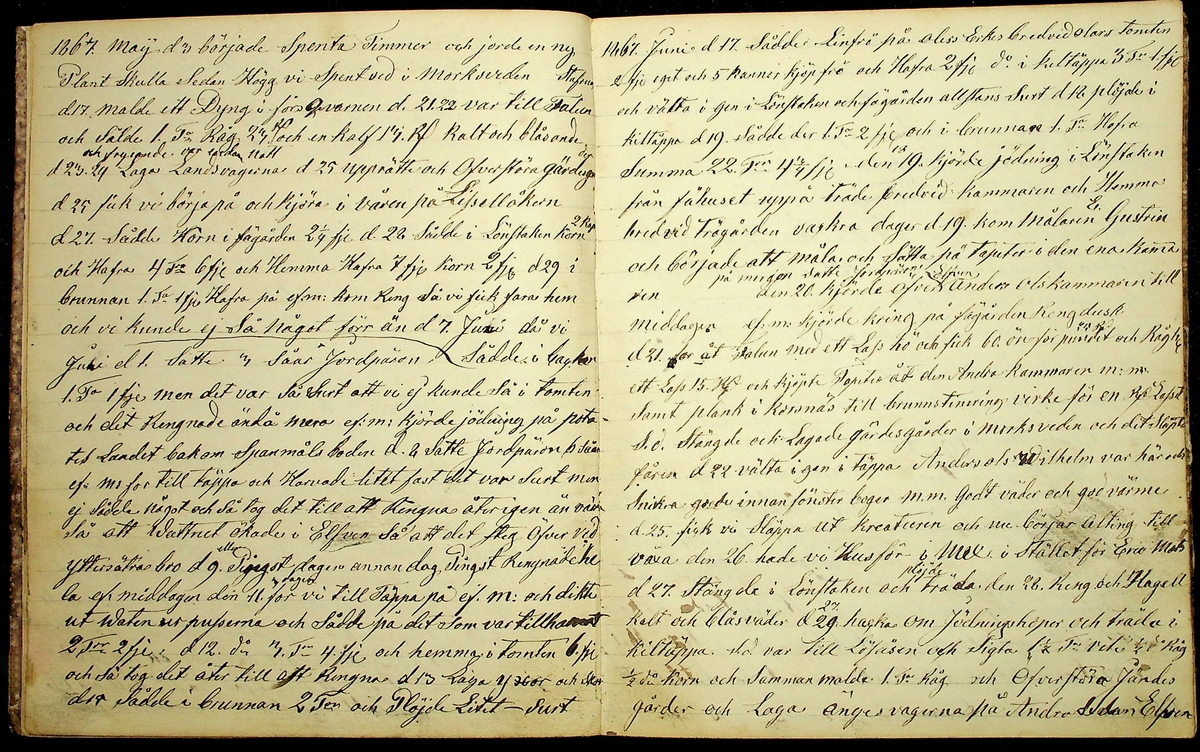 1867. May d 3 började Spenta Timmer och jorde en ny
Plant Skulla Sedan Högg vi Spentved i Morksveden
d 17. malde ett Dyng i förs qvarnen d. 21.22 var till Falun
och Sålde 1. Tr Råg och en kalf Kalt och blåsande
och frysande var endas Natt
d 23. 24 Laga Landsvägerna d 25 upprätte och Öfverföra gärdesgår
d 25 fick vi börja på och kjöra i våren på Lissellåkern
d 27. Sådde Korn i fägården 2 1/4 fje d 28 Sådde i Lönstaken Korn
och Hafra 4 Tr 6 fje och Hemma Hafra 7 fje Korn 2 fje d 29 i
brunnan 1. Tr 1 fje Hafra på ef.m: kom Reng Så vi fick fara hem
och vi kunde ej Så något förr än d 7 Juni då vi
Juni d 1. Satte 3 Såar Jordpäron. Sådde i
1. Tr 1 fje men det var Så Surt att vi ej kunde Så i tomten
och det Rengnade ändå mera ef: m: kjörde jödning på pota
tes Landet bakom Spanmålsboden d. 6 Satte Jordpäron
ef: m: for till täppa och Harvade litet fast det var Surt men
ej Sådde något och Så tog det till att Rengna åter igen än
Så att Wattnet ökade i Elfven Så att det steg Öfver vid
yttersätra bro d 9. eller Pingst dagen annan dag Pingst Rengnade he
la ef: middagen den 11. for vi till Täppa på ef. m: och dikte
ut Waten ur pusserna och Sådde på det Som var tillharvat
2 Tr 2 fje. d 12. då 3. Tr 4 fje och hemma i tomten 6. fje
och Så tog det åter till att Rengna d 13 Laga
d 14 Sådde i brunnan 2 Tr och Plöjde Litet – Surt
1867. Juni d 17. Sådde Linfrö på Olers Erks bredvid olars tomten
2 fje eget och 5 kannor kjöp frö och Hafra 2 fje då i Kiltäppa 3 Tr 1 fje
och välta i gen i Lönstaken och fägården allstans Surt d 18 plöjde i
kiltäppa d 19. Sådde der 1. Tr 2 fje och i brunnan 1. Tr Hafra
Summa 22. Tr 4 fje den 19. kjörde jödning i Lönstaken
från fähuset uppå träde bredvid kammaren och Hemma
bredvid Trägården vackra dager d 19. kom målaren Er. Gustrin
och började att måla och Sätta på tapeter i den ena kamma
ren den 20. kjörde öfver Elfven Anders Olskammaren till
middagen ef: m: kjörde kring på fägården Rengdusk
d 21. for åt Falun med ett Lass hö och fick 60. öre för pundet och
ett Lass 15. och kjöpte Tapeter åt den Andra kammaren m: m.
Samt plank i Korsnäs till brunnstimring virke för en
S.d. Stängde och Lagade gärdesgårder i morksveden och det Släpte
fåren d 22 välta i gen i täppa Andersols Wilhelm var här och
Snikra gorde innan fönster boger m.m. Godt väder och god värme
d 25. fick vi Släpa ut kreaturen och nu börjar allting till
växa den 26. hade vi Husför i Mel. i Stället för Erico Mats
d 27. Stängda i Lönstaken och plöjde träda. den 28. Reng och Hagell
Kalt och blåsväder d 29. hacka om Jödningshöper och träda i
Kiltäppa. S.d. var till Löfåsen och Sigta 1 1/2 Tr vete 1/2 d Råg
1/2 då Korn och Samman malde 1. Tr Råg och Öfverföra Järdes
gårder och Laga ängesvagerna på Andra Sidan Elfven